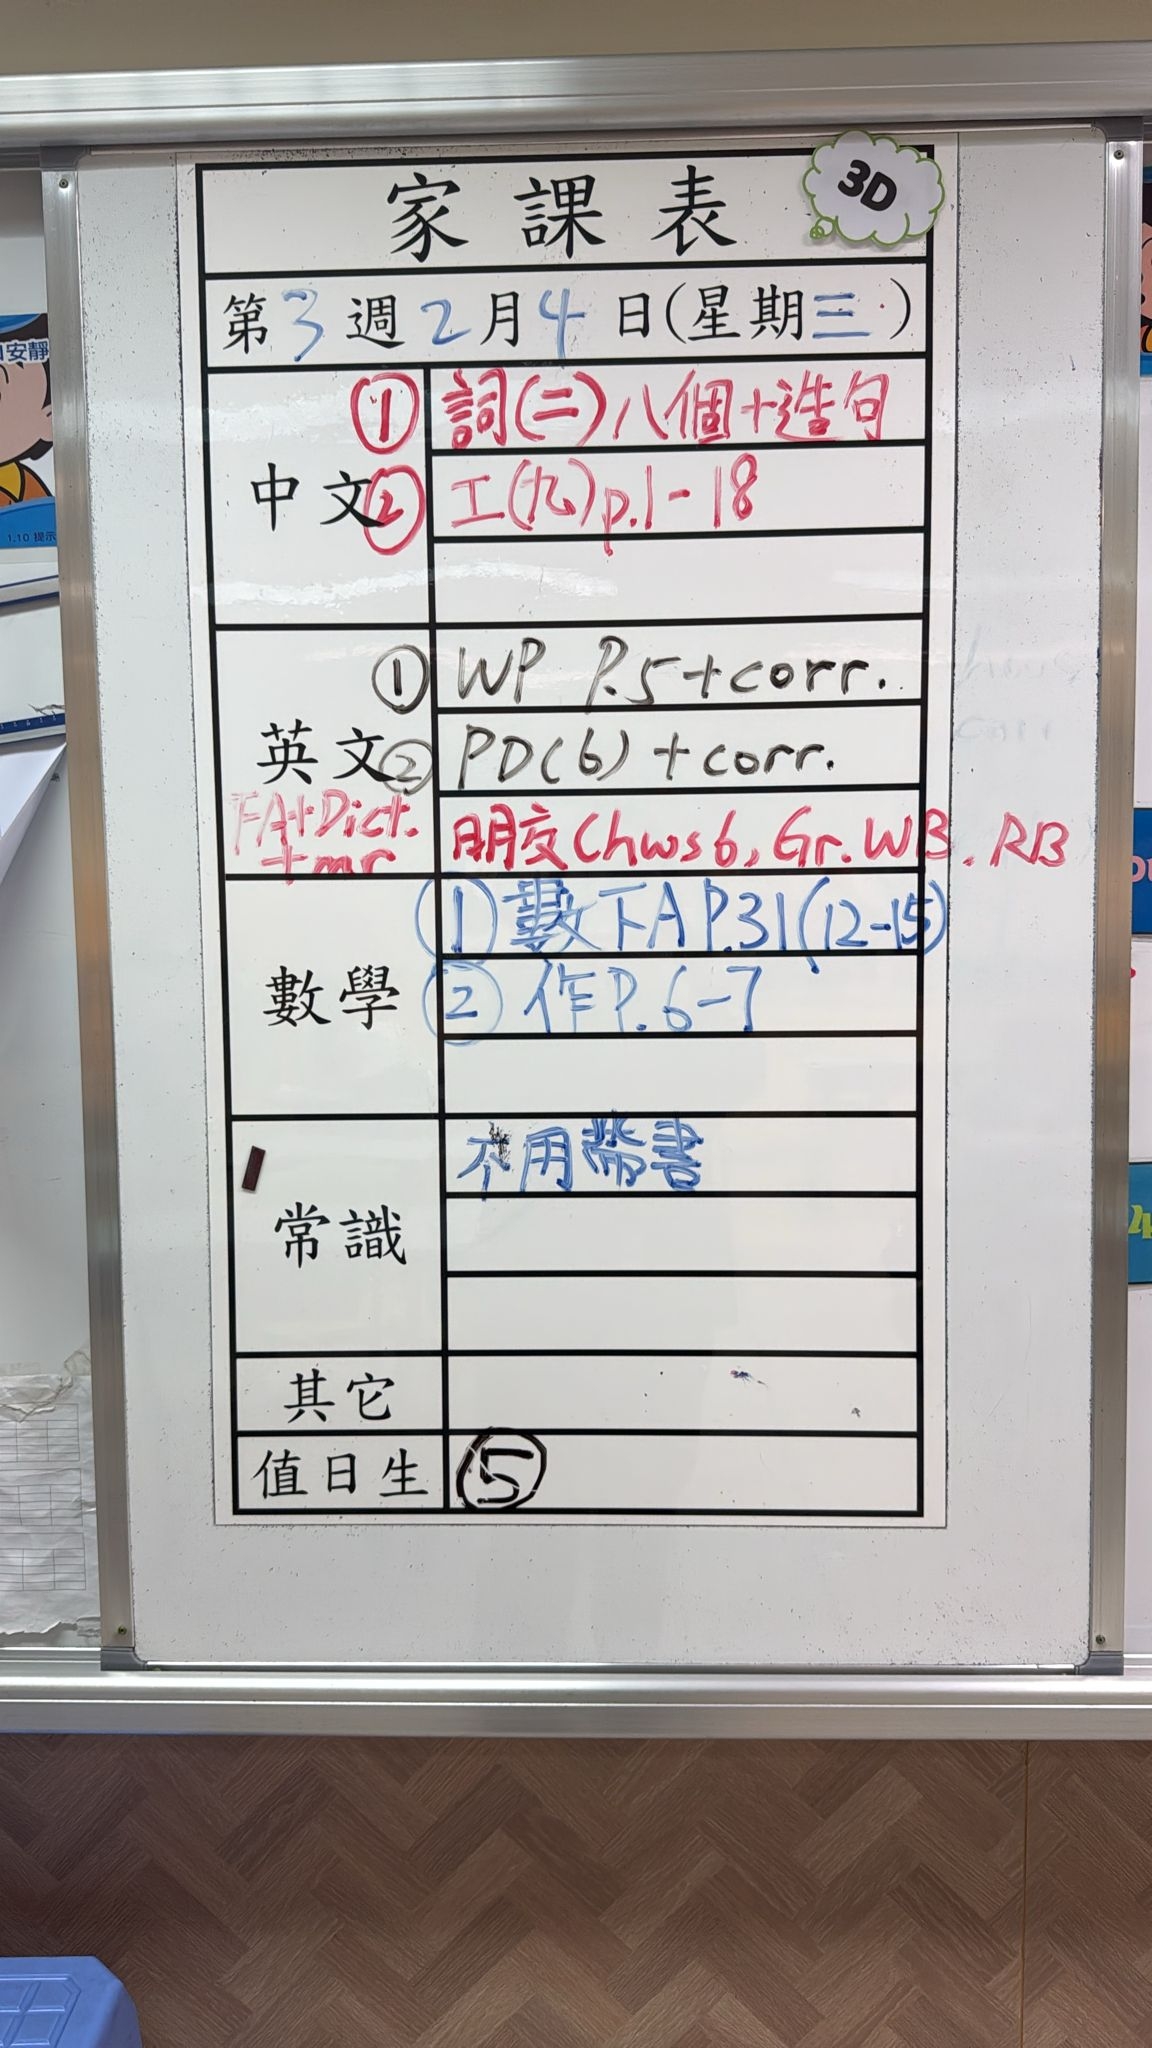 家課表
3D
第3週2月4日(星期三)
中文
① 詞(二)八個+造句
② 工(九)p.1-18
英文
① WP P.5+corr.
② PD(6)+corr.
FA+Dict.
+mr
朋交Chws6, Gr.WB. RB
數學
① 數下A P.31(12-15)
② 作P.6-7
常識
不用帶書
其它
值日生
⑤
安靜
1.10 提示